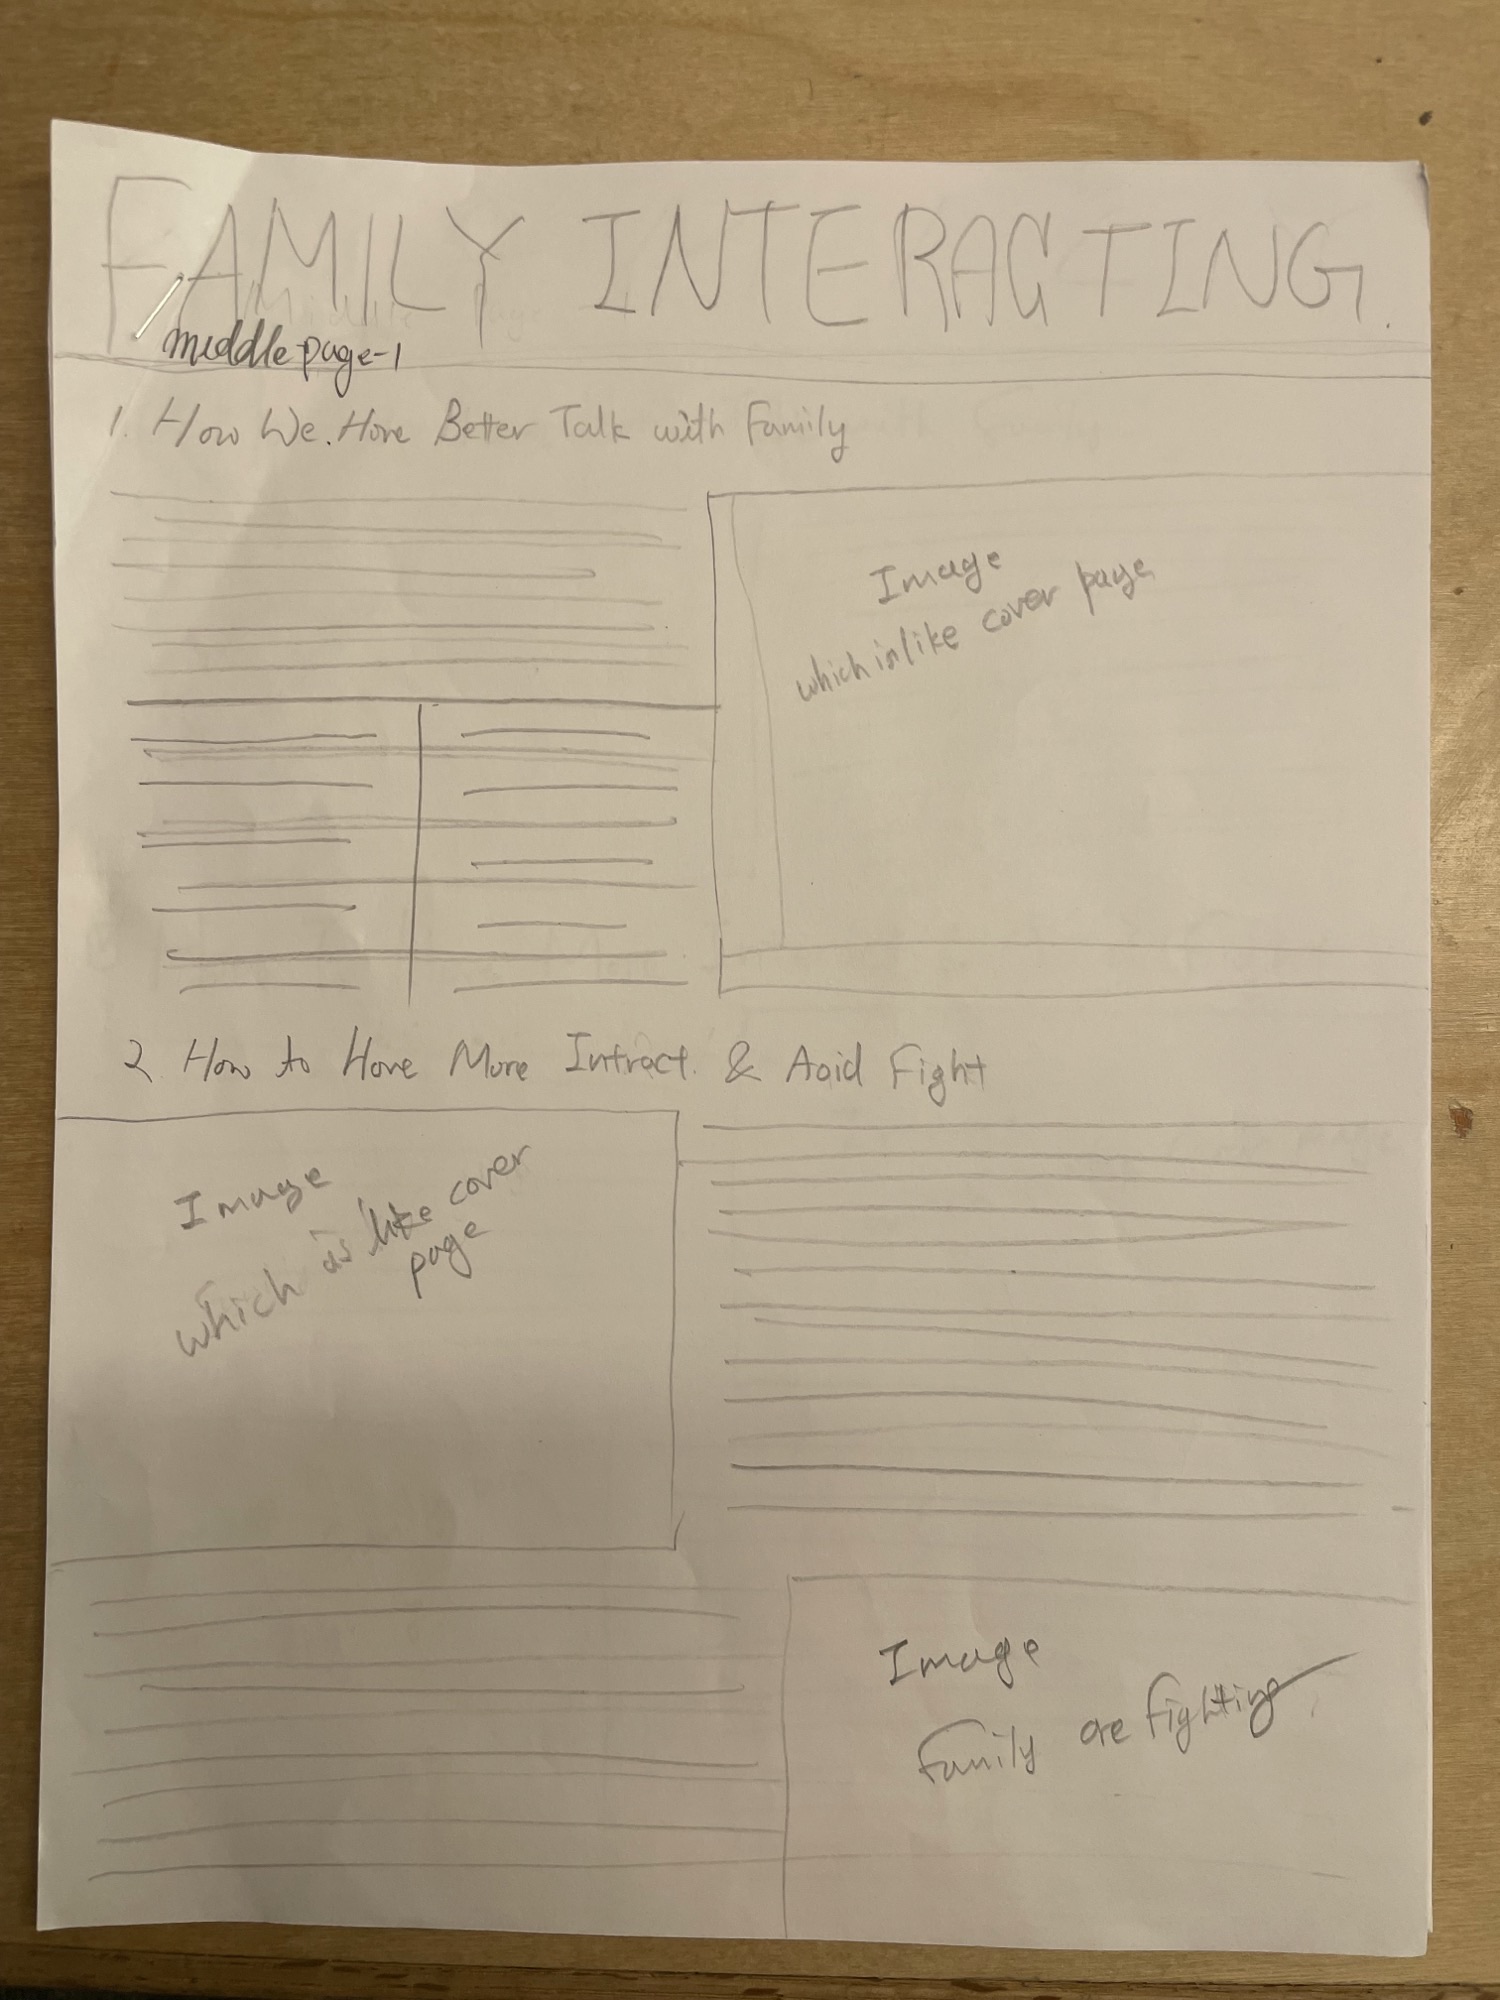 FAMILY INTERACTING.
middle page-1
1. How We. Have Better Talk with Family
Image
which is like cover page
2. How to Have More Intract. & Aoid Fight
Image
which is like cover
page
Image
Family are fighting